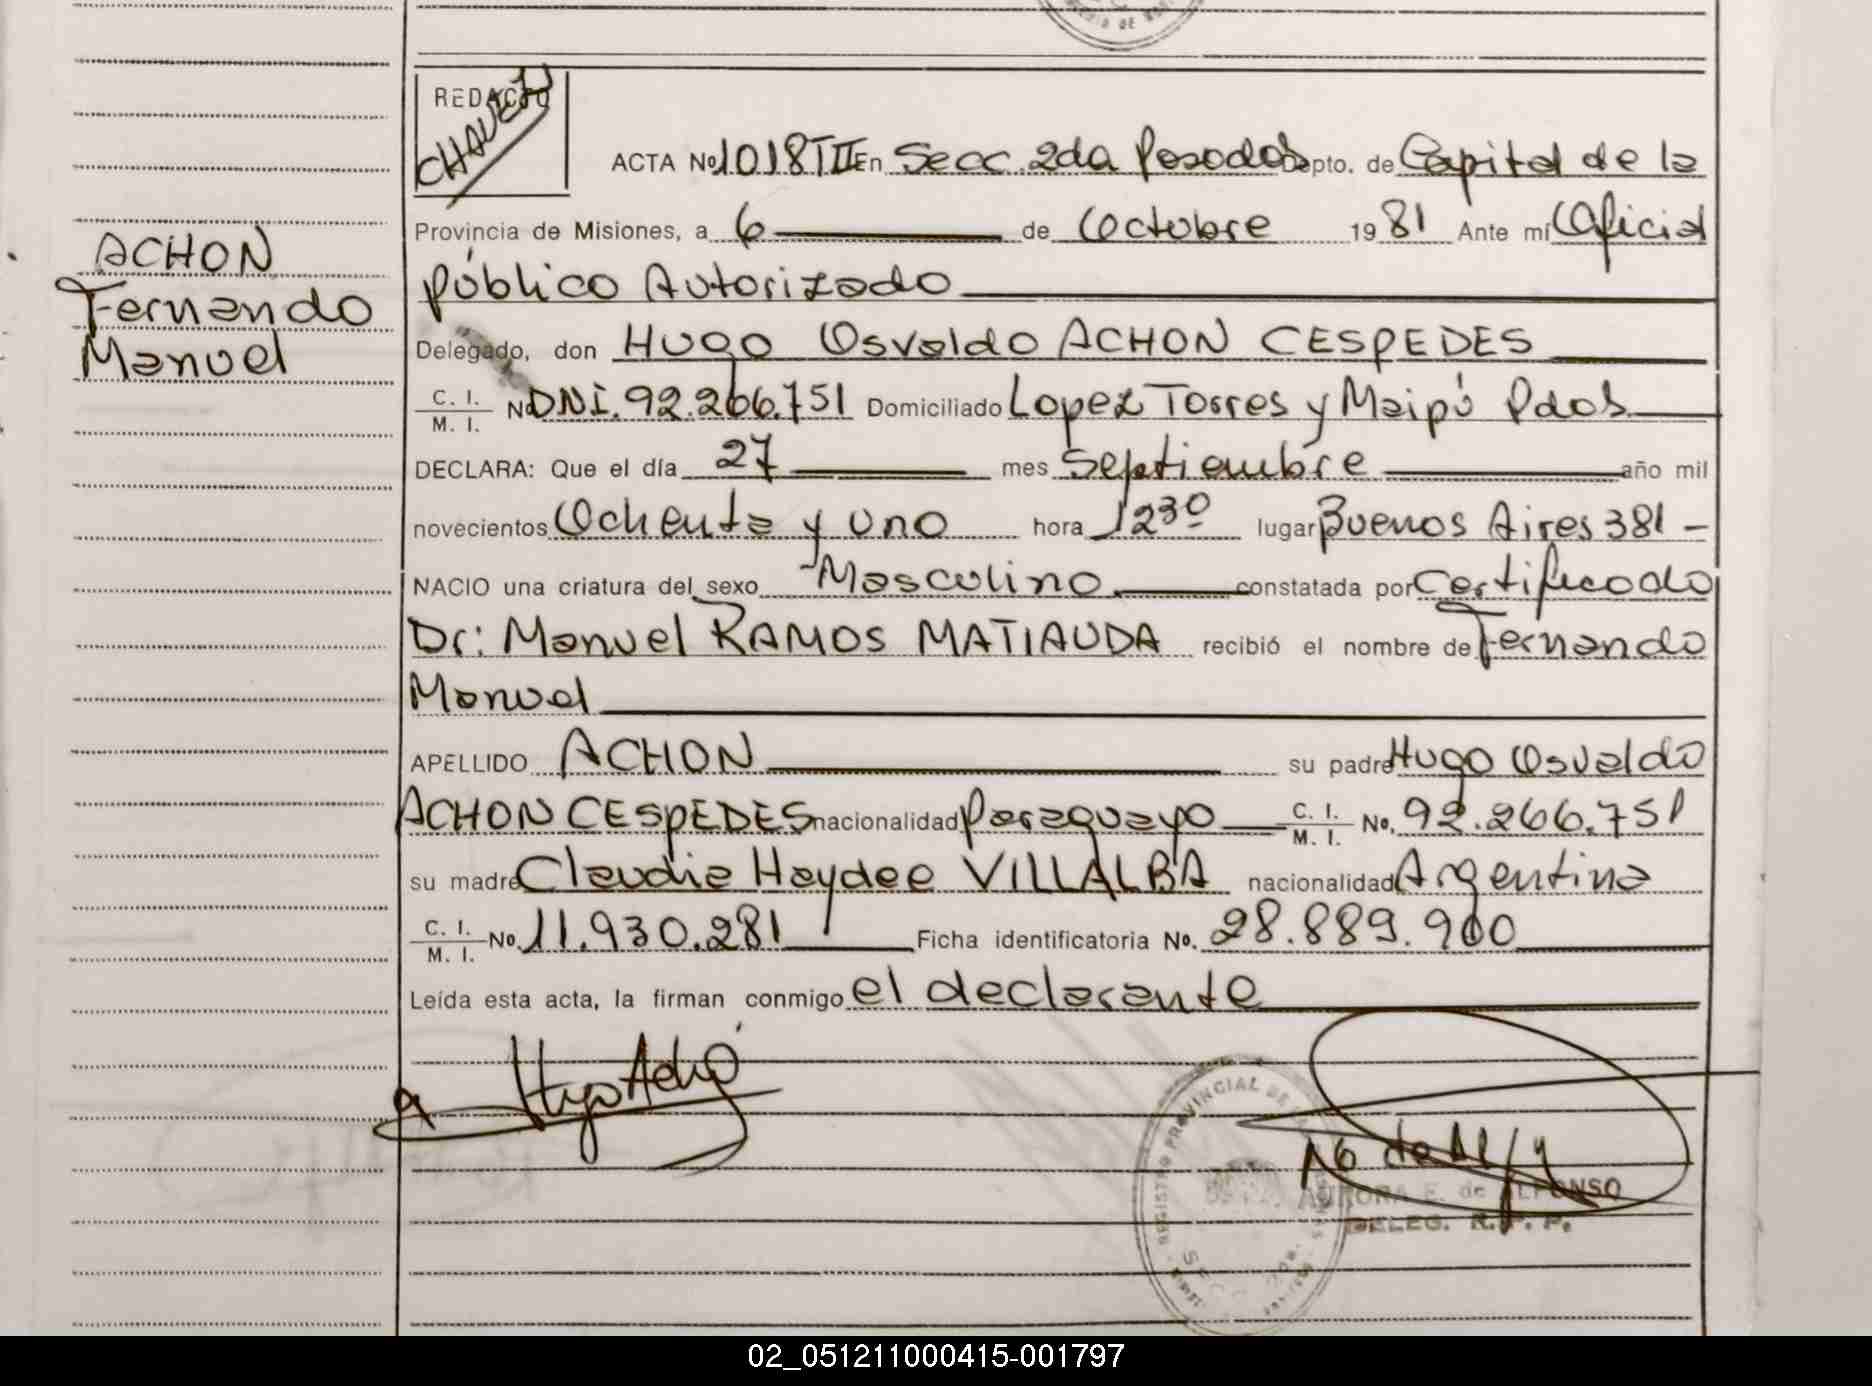 REDACTO
CHAVEZ
ACTA No 1018 TII En Secc. 2da Posadas Dpto. de Capital de la
Provincia de Misiones, a 6 de Octubre 1981 Ante mí Oficial
Público Autorizado
ACHON
Fernando
Manuel
Delegado, don Hugo Osvaldo ACHON CESPEDES
C. I. / M. I. No DNI. 92.266.751 Domiciliado Lopez Torres y Maipú Pdas
DECLARA: Que el día 27 mes Septiembre año mil
novecientos Ochenta y uno hora 12 30 lugar Buenos Aires 381 -
NACIO una criatura del sexo Masculino constatada por Certificado
Dr: Manuel RAMOS MATIAUDA recibió el nombre de Fernando
Manuel
APELLIDO ACHON su padre Hugo Osvaldo
ACHON CESPEDES nacionalidad Paraguayo C. I. / M. I. No. 92.266.751
su madre Claudia Haydee VILLALBA nacionalidad Argentina
C. I. / M. I. No. 11.930.281 Ficha identificatoria No. 28.889.900
Leída esta acta, la firman conmigo el declarante
Hugo Achó
REGISTRO PROVINCIAL DE LAS PERSONAS
AURORA E. de ALFONSO
DELEG. R. P. P.
02_051211000415-001797